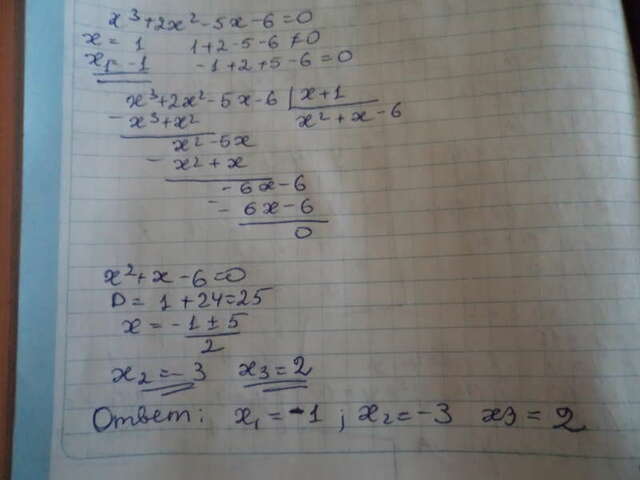 x³+2x²-5x-6=0
x=1 1+2-5-6≠0
x₁=-1 -1+2+5-6=0
x³+2x²-5x-6 | x+1
-x³+x² x²+x-6
x²-5x
- x²+x
-6x-6
- -6x-6
0
x²+x-6=0
D=1+24=25
x=-1±5
2
x₂=-3 x₃=2
Ответ: x₁=-1; x₂=-3 x₃=2